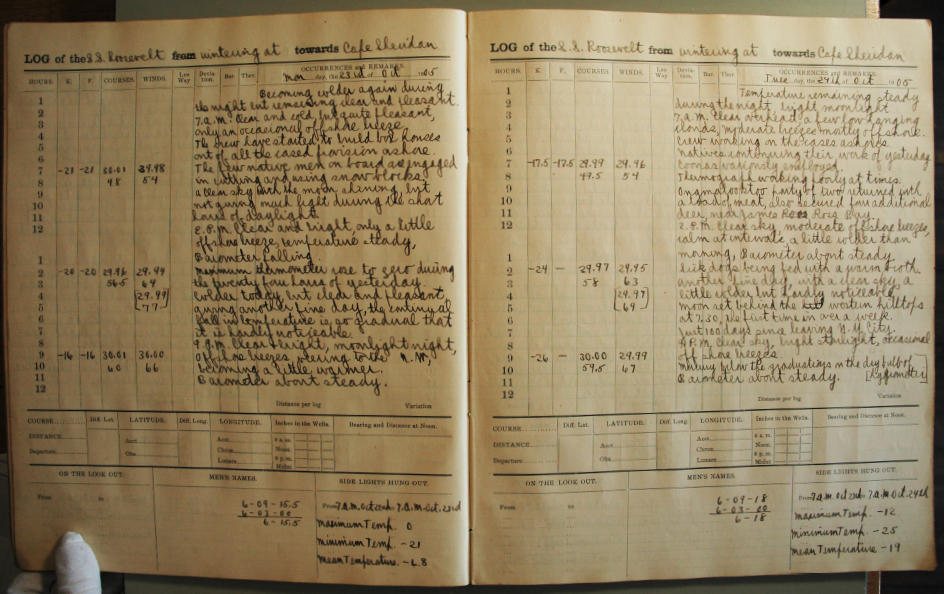 LOG of the S.S. Roosevelt from wintering at towards Cape Sheridan
OCCURRENCES and REMARKS.
HOURS. K. F. COURSES. WINDS. Lee Way Devia- tion. Bar. Ther. Mon day, the 23rd of Oct 1905
1 Becoming colder again during
2 the night but remaining clear and pleasant.
3 7 a.m. Clear and cold, but quite pleasant,
4 only an occasional off shore breeze.
5 The crew have started to build box houses
6 out of all the cased provision ashore.
7 -21 -21 30.01 29.98 The few native men on board are engaged
8 48 54 in cutting and using snow blocks.
9 a clear sky with the moon shining, but
10 not giving much light during the short
11 hours of daylight.
12 2 P.M. Clear and bright, only a little
off shore breeze, temperature steady,
1 Barometer falling.
2 -20 -20 29.96 29.99 Maximum thermometer rose to zero during
3 56.5 64 the twenty four hours of yesterday.
4 [29.99 Colder today, but clear and pleasant,
5 77] giving another fine day, the continual
6 fall in temperature is so gradual that
7 it is hardly noticeable.
8 9 P.M. Clear & bright, moonlight night,
9 -16 -16 30.01 30.00 Off shore breezes, veering to the N.W,
10 60 66 becoming a little warmer.
11 Barometer about steady.
12
Distance per log Variation
COURSE Diff. Lat. LATITUDE. Diff. Long. LONGITUDE. Inches in the Wells. Bearing and Distance at Noon.
DISTANCE Acct. Acct. 8 a.m.
Departure Obs. Chron. Noon.
Lunars 8 p.m.
Midnt
ON THE LOOK OUT. MEN'S NAMES. SIDE LIGHTS HUNG OUT.
From to 6-09-15.5 From 7 a.m. Oct 22nd to 7 A.M. Oct. 23rd
6-03-00 Maximum Temp. 0
6-15.5 minimum Temp. -21
mean Temperature.
LOG of the S.S. Roosevelt from wintering at towards Cape Sheridan
OCCURRENCES and REMARKS.
HOURS. K. F. COURSES. WINDS. Lee Way Devia- tion. Bar. Ther. Tues day, the 24th of Oct 1905
1 Temperature remaining steady
2 during the night, bright moonlight
3 7 a.m. Clear overhead, a few low hanging
4 clouds, moderate breezes mostly off shore.
5 Crew working on the cases ashore.
6 natives continuing their work of yesterday
7 -17.5 -17.5 29.99 29.96 Coonas variously employed.
8 49.5 54 Thermograph working poorly at times.
9 Ongmalooktoo party of two returned with
10 a load of meat, also secured four additional
11 deer, near James Ross Bay.
12 2 P.M. Clear sky, moderate off shore breezes,
calm at intervals, a little colder than
1 morning, Barometer about steady
2 -24 - 29.97 29.95 Sick dogs being fed with a warm broth
3 58 63 another fine day, with a clear sky, a
4 [29.97 little colder but hardly noticeable,
5 69] moon set behind the western hilltops
6 at 7.30, the first time in over a week.
7 Just 100 days since leaving N.Y. City.
8 9 P.M. Clear sky, bright starlight, occasional
9 -26 - 30.00 29.99 off shore breezes.
10 59.5 67 Mercury below the graduations in the dry bulb of
11 Barometer about steady. [Hygrometer]
12
Distance per log Variation
COURSE Diff. Lat. LATITUDE. Diff. Long. LONGITUDE. Inches in the Wells. Bearing and Distance at Noon.
DISTANCE Acct. Acct. 8 a.m.
Departure Obs. Chron. Noon.
Lunars 8 p.m.
Midnt
ON THE LOOK OUT. MEN'S NAMES. SIDE LIGHTS HUNG OUT.
From to 6-09-18 From 7 a.m. Oct 23rd to 7 a.m. Oct. 24th
6-03-00 maximum Temp. -12
6-18 minimum Temp. -25
mean Temperature -19